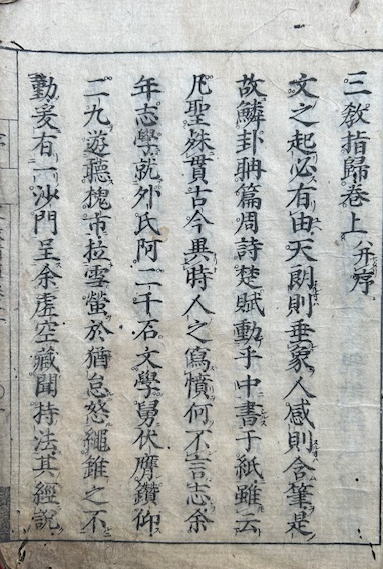 三敎指歸卷上 并序
文之起必有由天朗則垂象人感則含筆是
故鱗卦聃篇周詩楚賦動乎中書于紙雖云
凡聖殊貫古今異時人之寫憤何不言志余
年志學就外氏阿二千石文學舅伏膺鑽仰
二九遊聽槐市拉雪螢於猶怠怒繩錐之不
勤爰有一沙門呈余虛空藏聞持法其經說